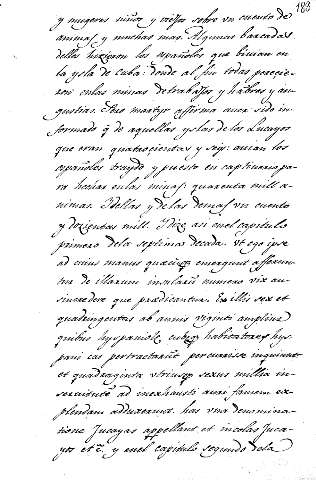 183
y mugeres niños y viejos sobre vn cuento de
animas y muchas mas. Algunas barcadas
dellas hizieron los españoles que biuian en
la ysla de cuba: donde al fin todas perecie-
ron en las minas de trabajos y hābres y an-
gustias. Pero martyr affirma auer sido in-
formado q̄ de aquellas yslas de los Lucayos
que eran quatrocientas y seys: auian los
españoles traydo y puesto en captiuerio pa-
ra hechar en las minas quarenta mill a-
nimas. Y dellas y de las demas vn cuento
y dozientas mill. Y dize asi en el capitulo
primero de la septima decada. vt ego ipse
ad cuius manus quæcūq emergunt afferuntur
de illarum insularū numero vix au-
sim credere que prædicantur. Ex illis sex et
quadringentas ab annis viginti amplius
quibus hyspaniolæ cubæq habitatores hys-
pani eas pertractarūt percurrisse inquiunt
et quadraginta vtriusq sexus millia in
seruitutē ad inexhausti auri famem ex-
plendam adduxerunt. has vna denomina-
tione Iucayas appellant et incolas Iuca-
yos etc̄. y en el capitulo segundo de la